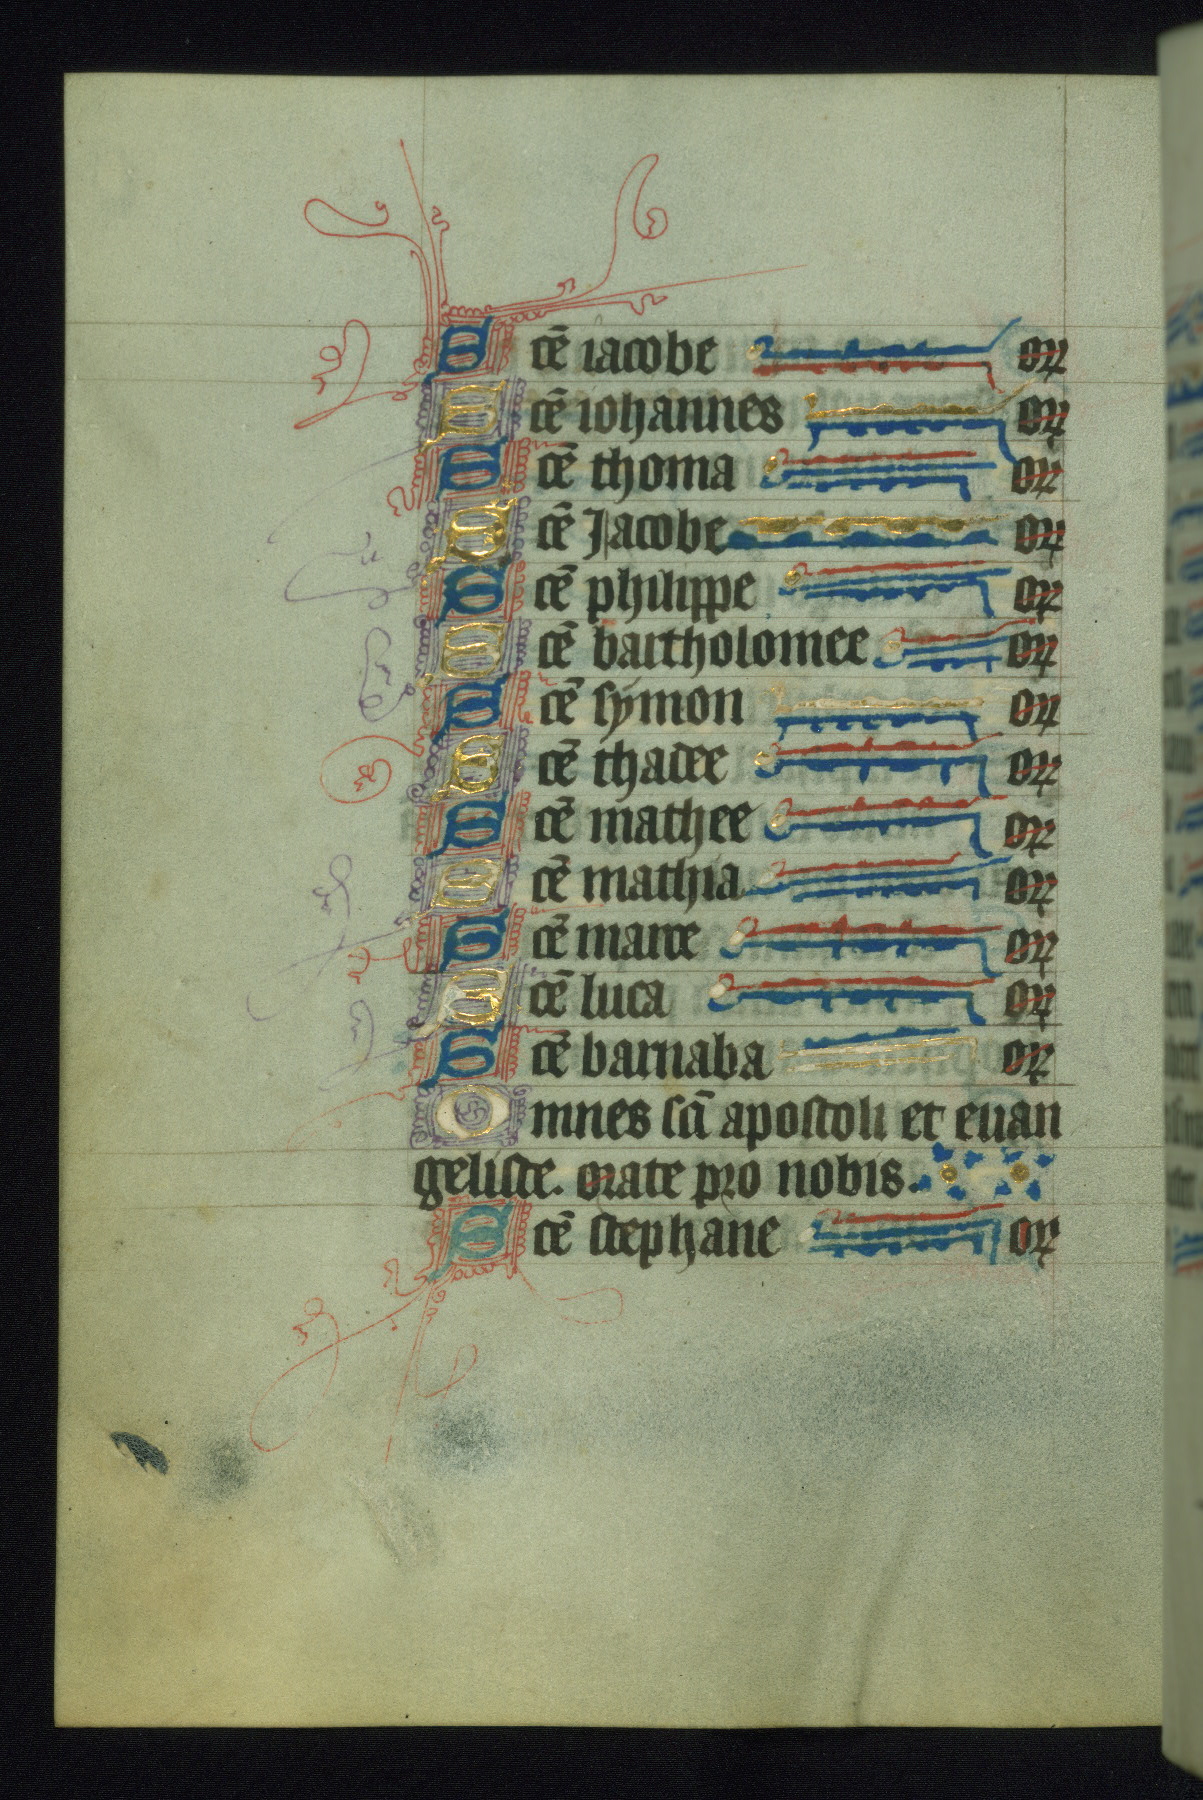 Scē iacobe or
Scē iohannes or
Scē thoma or
Scē Jacobe or
Scē philippe or
Scē bartholomee or
Scē symon or
Scē thadee or
Scē mathee or
Scē mathia or
Scē marce or
Scē luca or
Scē barnaba or
Omnes scī apostoli et euan
geliste. orate pro nobis.
Scē stephane or